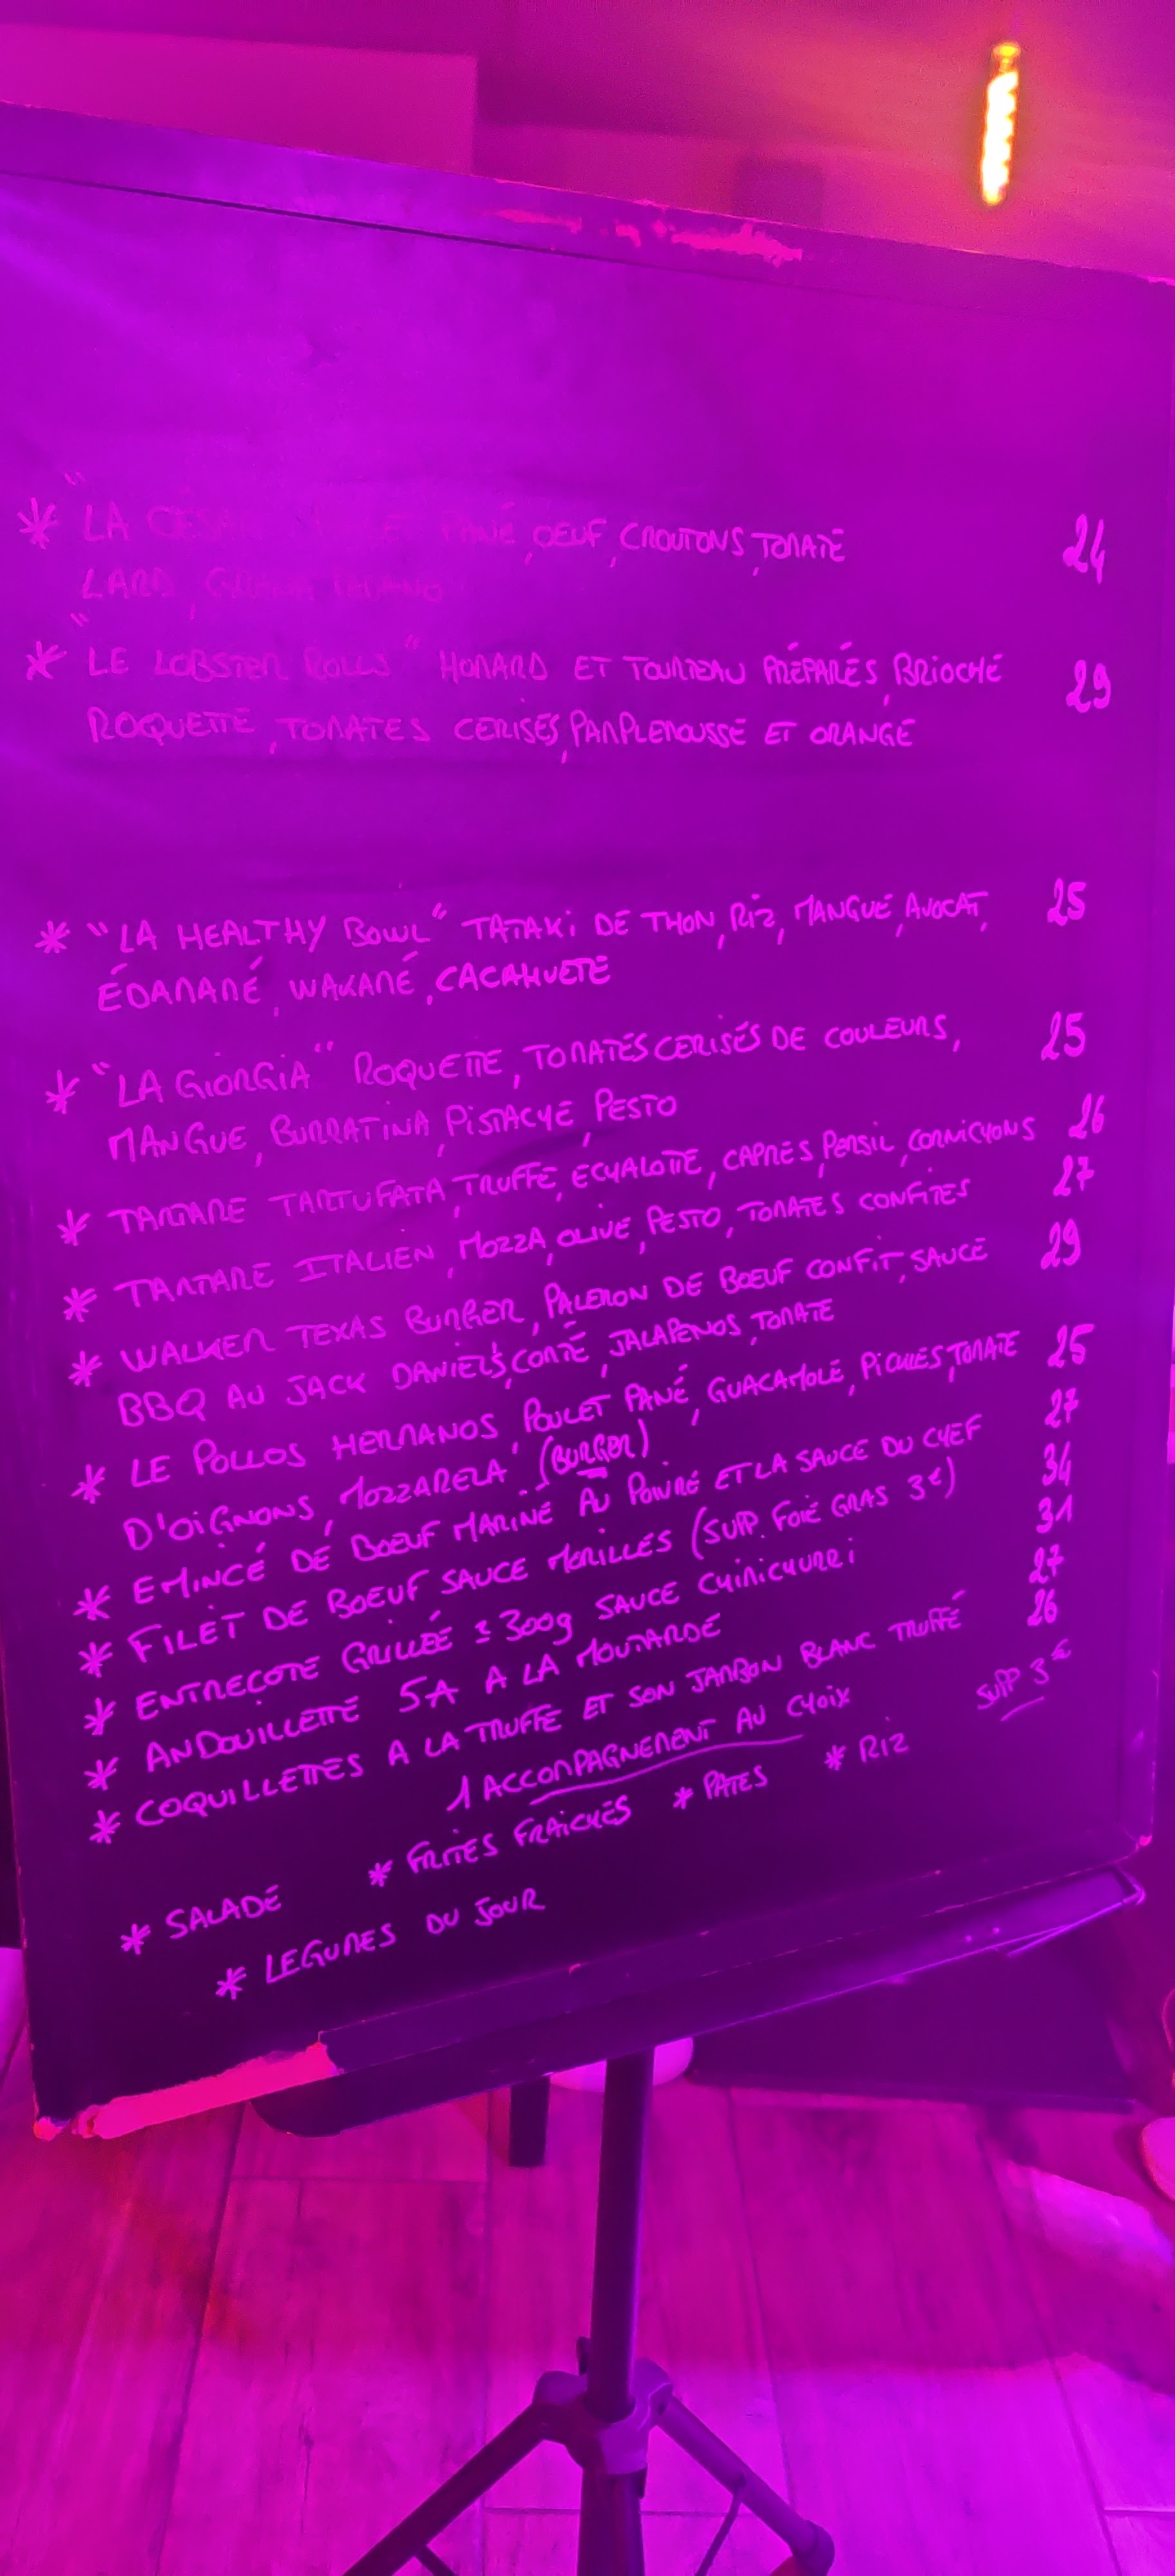 * "LA CÉSAR POULET PANÉ, OEUF, CROUTONS, TOMATE 24
LARD, GRANA PADANO"
* "LE LOBSTER ROLLS" HOMARD ET TOURTEAU PRÉPARÉS, BRIOCHE 29
ROQUETTE, TOMATES CERISES, PAMPLEMOUSSE ET ORANGE
* "LA HEALTHY BOWL" TATAKI DE THON, RIZ, MANGUE, AVOCAT, 25
ÉDAMAMÉ, WAKAMÉ, CACAHUETE
* "LA GIORGIA" ROQUETTE, TOMATES CERISES DE COULEURS, 25
MANGUE, BURRATINA, PISTACHE, PESTO
* TARTARE TARTUFATA, TRUFFE, ECHALOTTE, CAPRES, PERSIL, CORNICHONS 26
* TARTARE ITALIEN, MOZZA, OLIVE, PESTO, TOMATES CONFITES 27
* WALKER TEXAS BURGER, PALERON DE BOEUF CONFIT, SAUCE 29
BBQ AU JACK DANIEL'S, COMTÉ, JALAPENOS, TOMATE
* LE POLLOS HERMANOS, POULET PANÉ, GUACAMOLE, PICKLES, TOMATE 25
D'OIGNONS, MOZZARELA (BURGER)
* EMINCÉ DE BOEUF MARINÉ AU POIVRE ET LA SAUCE DU CHEF 27
* FILET DE BOEUF SAUCE MORILLES (SUPP. FOIE GRAS 3€) 34
* ENTRECOTE GRILLÉE ± 300g SAUCE CHIMICHURRI 31
* ANDOUILLETTE 5A A LA MOUTARDE 27
* COQUILLETTES A LA TRUFFE ET SON JAMBON BLANC TRUFFÉ 26
1 ACCOMPAGNEMENT AU CHOIX SUPP 3€
* SALADE * FRITES FRAICHES * PATES * RIZ
* LEGUMES DU JOUR